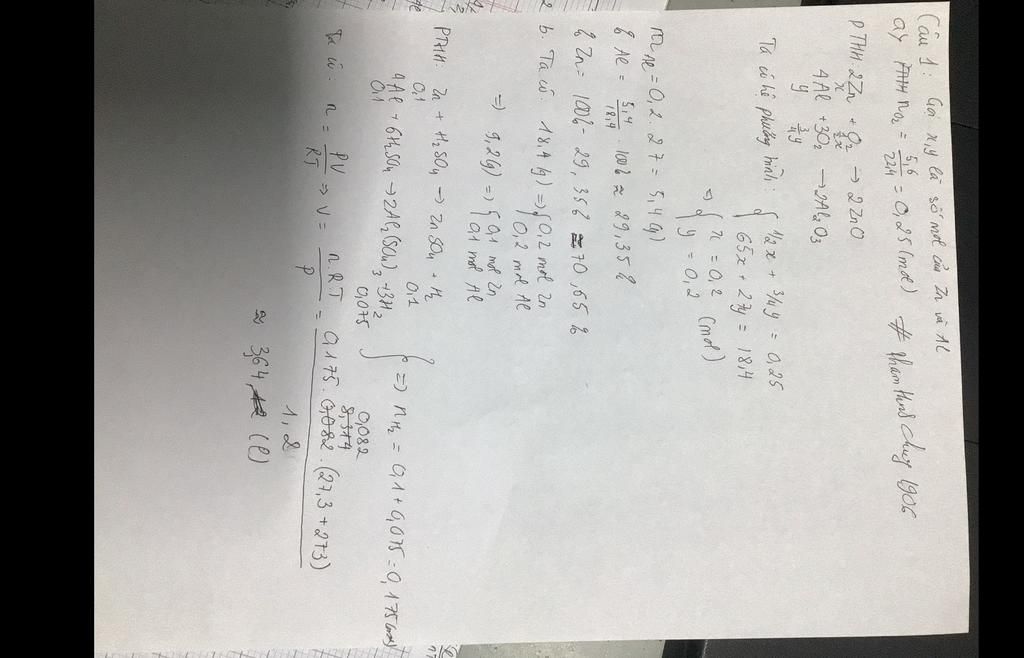 Câu 1: Gọi x,y là số mol của Zn và Al
a) nO2 = 5,6/22,4 = 0,25 (mol) # phamthuyduy1906
PTHH: 2Zn + O2 → 2ZnO
x 1/2x
4Al + 3O2 → 2Al2O3
y 3/4y
Ta có hệ phương trình: { 1/2x + 3/4y = 0,25
65x + 27y = 18,4
=> { x = 0,2 (mol)
y = 0,2
mAl = 0,2 . 27 = 5,4 (g)
% Al = 5,4/18,4 . 100% ≈ 29,35%
% Zn = 100% - 29,35% = 70,65%
b. Ta có: 18,4 (g) => { 0,2 mol Zn
0,2 mol Al
=> 9,2 (g) => { 0,1 mol Zn
0,1 mol Al
PTHH: Zn + H2SO4 → ZnSO4 + H2
0,1 0,1
4Al + 6H2SO4 → 2Al2(SO4)3 + 3H2
0,1 0,075
} => nH2 = 0,1 + 0,075 = 0,175 (mol)
Ta có: n = PV/RT => V = n.RT/P = 0,175 . 0,082 . (27,3 + 273) / 1,2
≈ 3,64 (l)